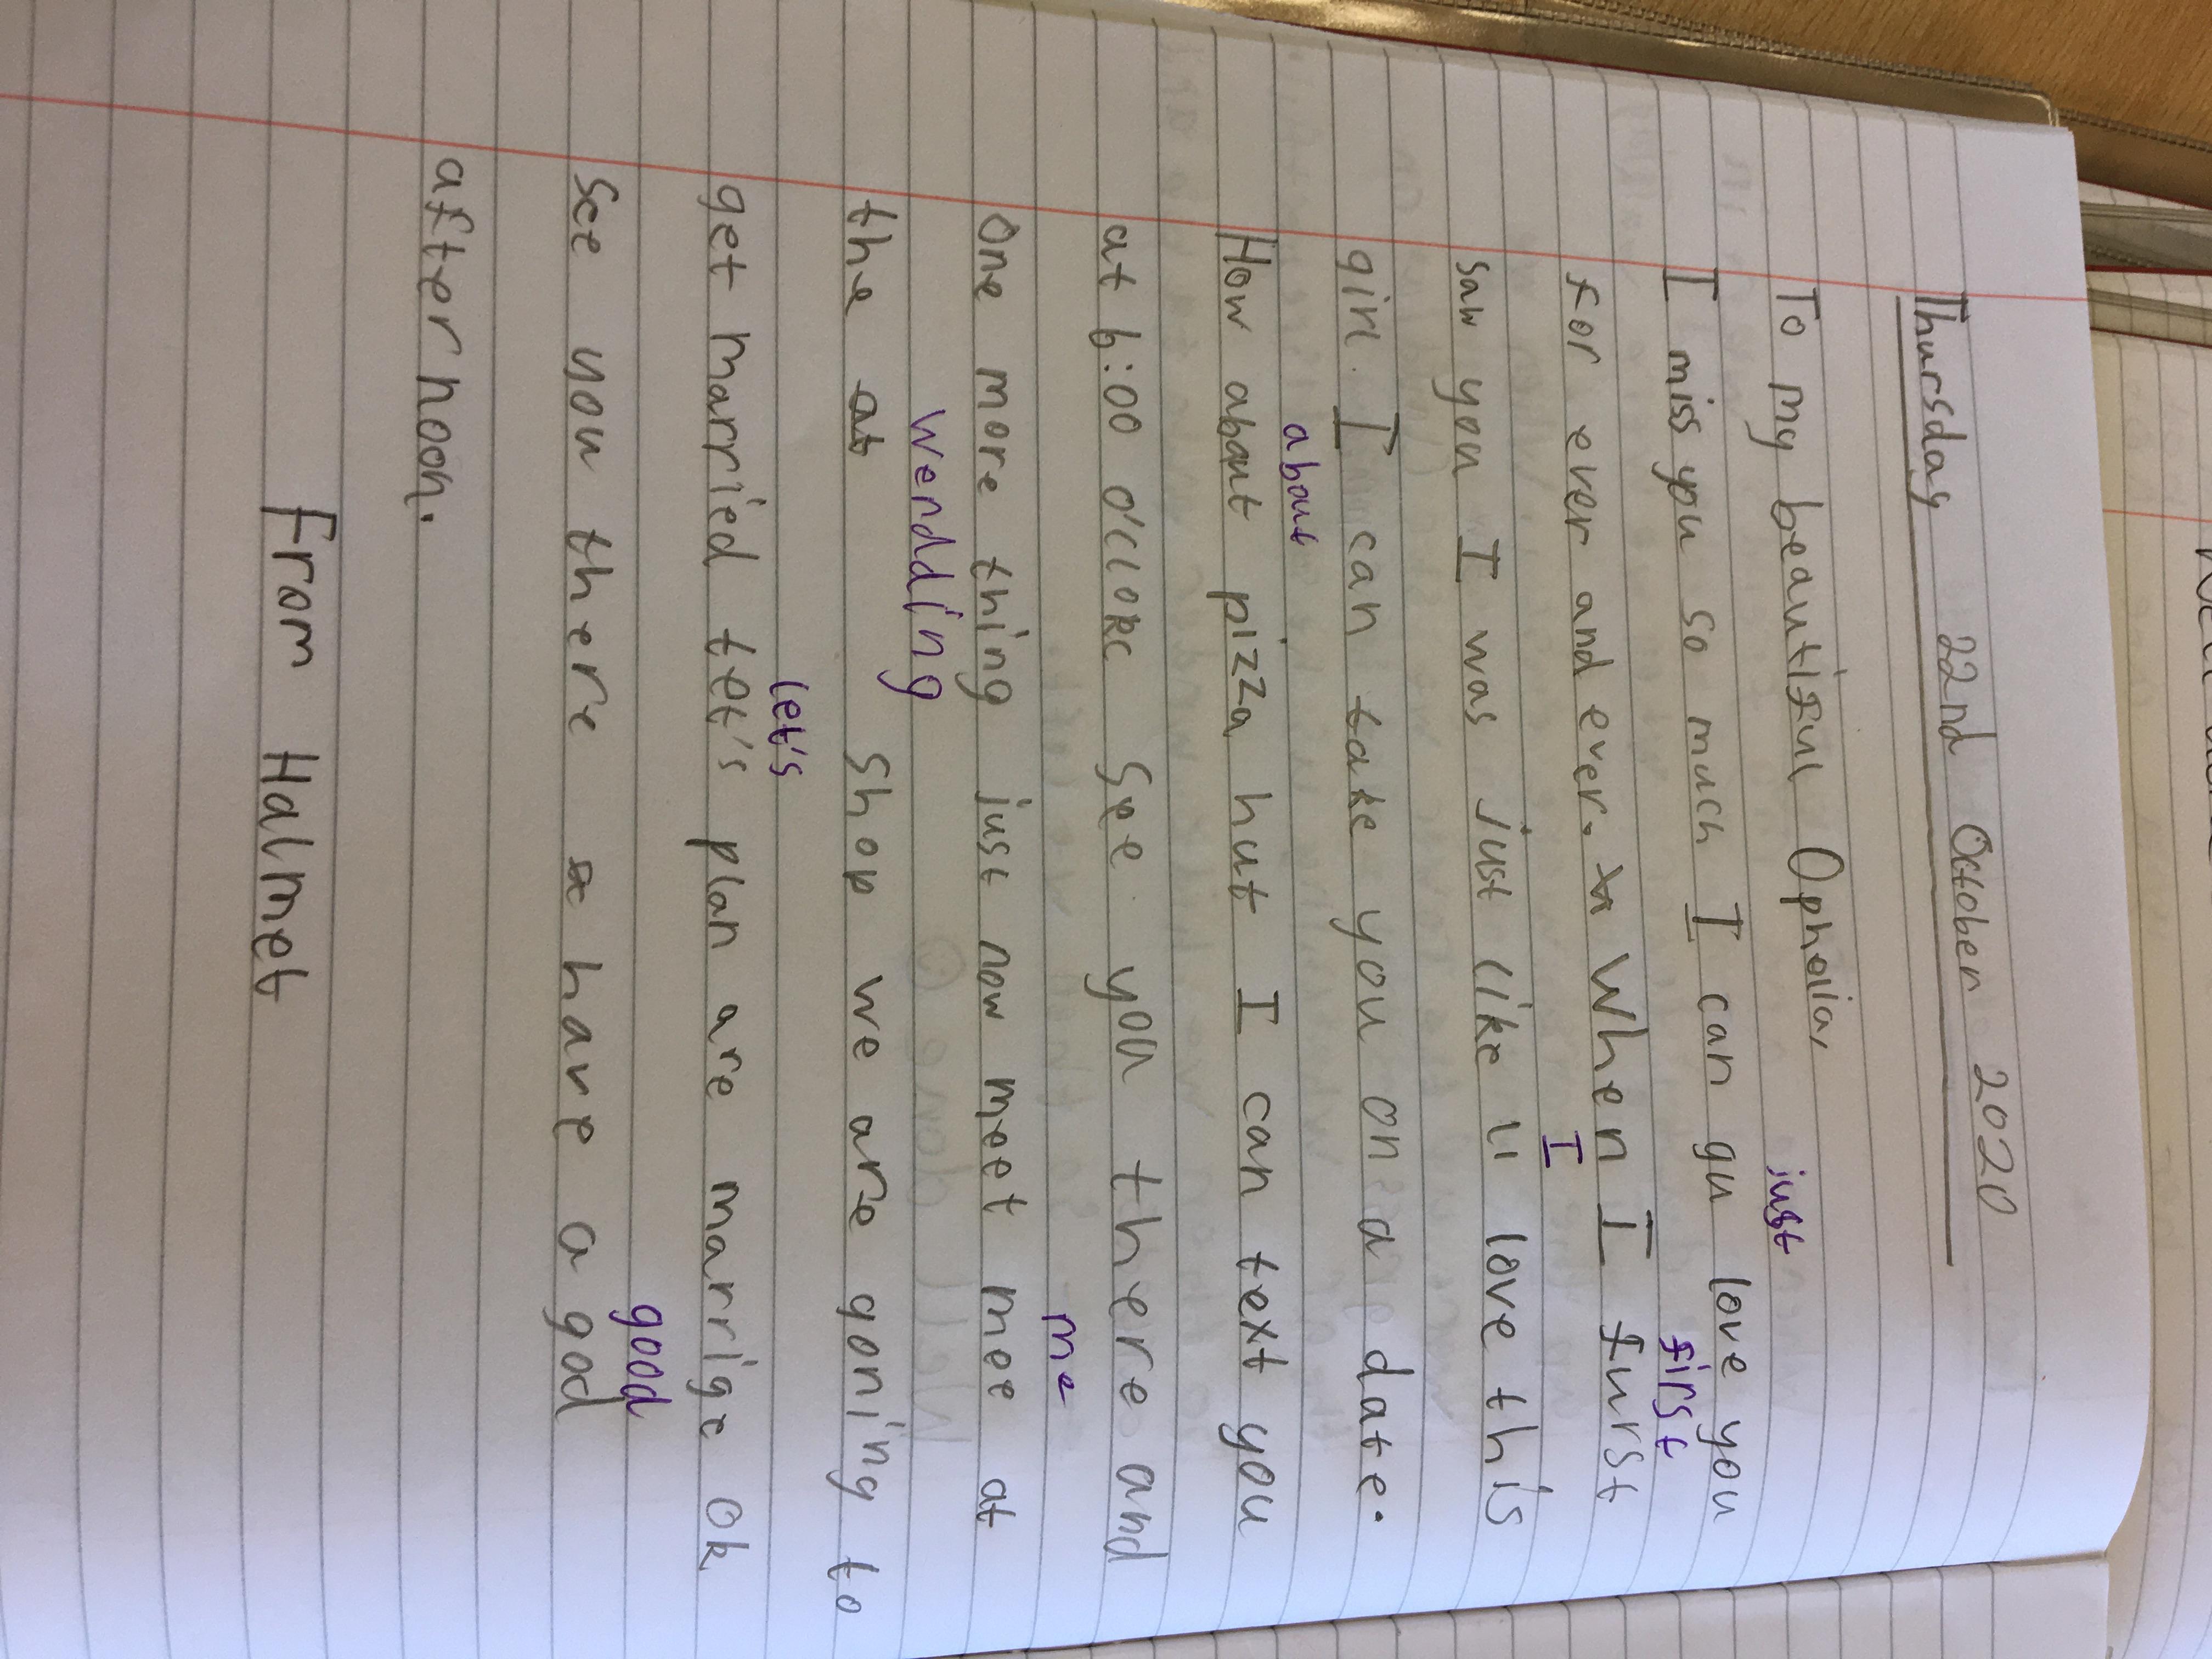 Thursday 22nd October 2020
To my beautiful Ophailia,
just
I miss you so much I can gu love you
first
for ever and ever. When I furst
I
saw you I was just like u love this
girl. I can take you on a date.
about
How abaut pizza hut I can text you
at 6:00 o'cloke See you there and
me
One more thing just now meet mee at
wendding
the at Shop we are goning to
let's
get married let's plan are marrige ok
good
See you there have a god
afternoon.
From Halmet